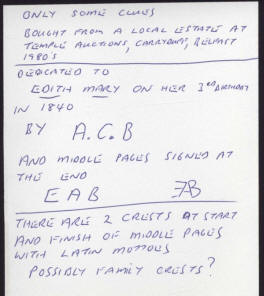 ONLY SOME CLUES
BOUGHT FROM A LOCAL ESTATE AT
TEMPLE AUCTIONS, CARRYDUFF, BELFAST
1980'S
DEDICATED TO
EDITH MARY ON HER 3RD BIRTHDAY
IN 1840
BY A.C.B
AND MIDDLE PAGES SIGNED AT
THE END
EAB EAB
THERE ARE 2 CRESTS AT START
AND FINISH OF MIDDLE PAGES
WITH LATIN MOTTOES
POSSIBLY FAMILY CRESTS?